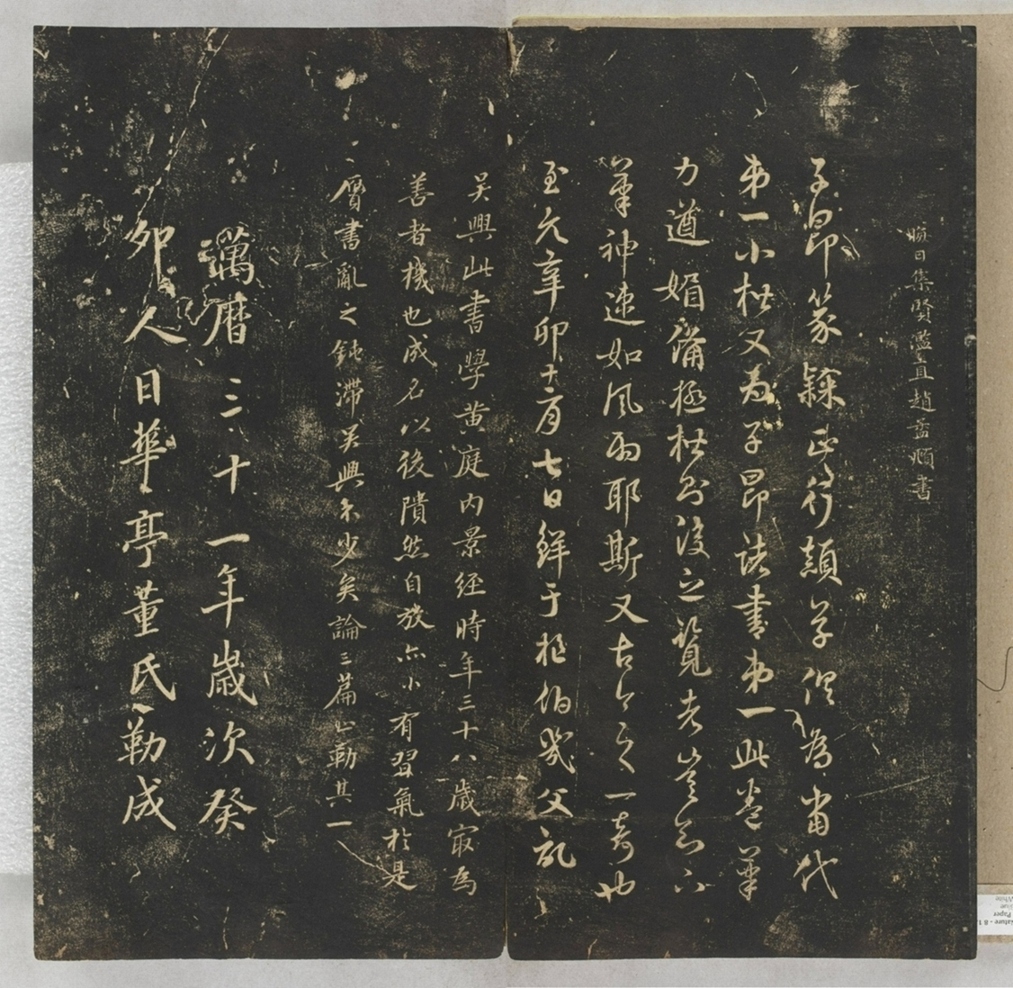 日集賢直趙孟頫書
子昂篆隸正行顛草俱為當代
第一小楷又為子昂諸書第一此卷筆
力遒媚備極楷則後之覽者豈知下
筆神速如風雨耶斯又古今之一奇也
至元辛卯十二月七日鮮于樞伯幾父記
吳興此書學黃庭內景經時年三十八歲冣為
善者機也成名以後隤然自放亦小有習氣於是
贗書亂之鈍滯吳興不少矣論三篇止勒其一
萬曆三十一年歲次癸
卯人日華亭董氏勒成